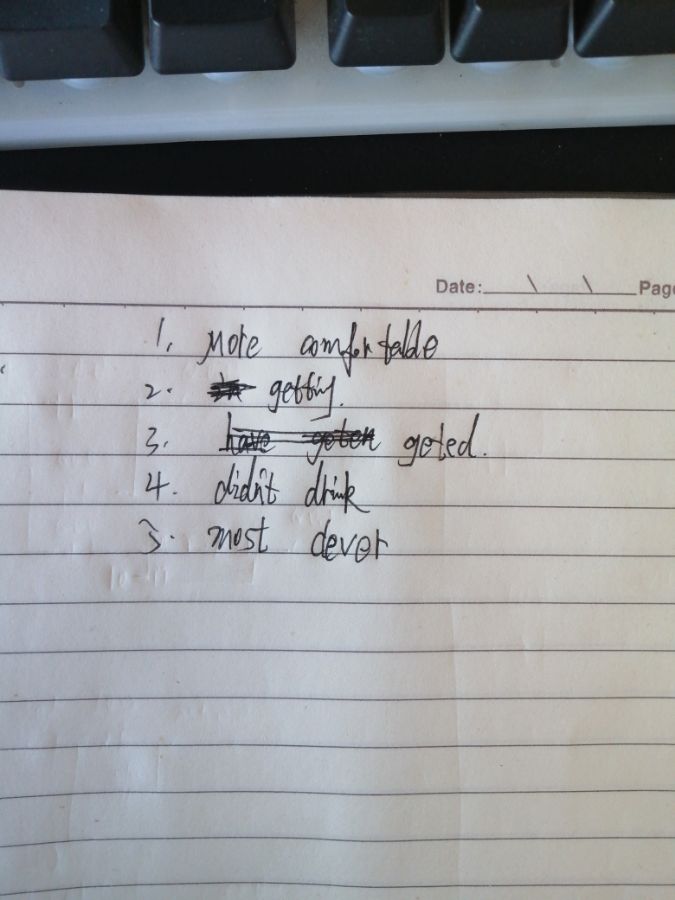 Date: \ \ Page
1. More comfortable
2. getting.
3. have goten goted.
4. didn't drink
3. most clever